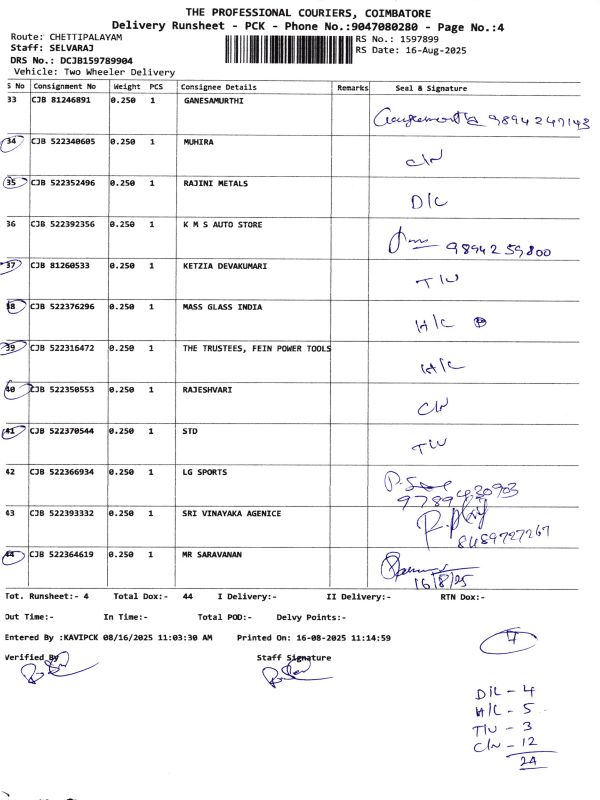 THE PROFESSIONAL COURIERS, COIMBATORE
Delivery Runsheet - PCK - Phone No.:9047080280 - Page No.:4
Route: CHETTIPALAYAM RS No.: 1597899
Staff: SELVARAJ RS Date: 16-Aug-2025
DRS No.: DCJB159789904
Vehicle: Two Wheeler Delivery
S No Consignment No Weight PCS Consignee Details Remarks Seal & Signature
33 CJB 81246891 0.250 1 GANESAMURTHI
9894247143
34 CJB 522340605 0.250 1 MUHIRA
C/N
35 CJB 522352496 0.250 1 RAJINI METALS
D/C
36 CJB 522392356 0.250 1 K M S AUTO STORE
9894259800
37 CJB 81260533 0.250 1 KETZIA DEVAKUMARI
T/U
38 CJB 522376296 0.250 1 MASS GLASS INDIA
H/C
39 CJB 522316472 0.250 1 THE TRUSTEES, FEIN POWER TOOLS
H/C
40 CJB 522350553 0.250 1 RAJESHVARI
C/N
41 CJB 522370544 0.250 1 STD
T/U
42 CJB 522366934 0.250 1 LG SPORTS
9789430903
43 CJB 522393332 0.250 1 SRI VINAYAKA AGENICE
8489727267
44 CJB 522364619 0.250 1 MR SARAVANAN
16/8/25
Tot. Runsheet:- 4 Total Dox:- 44 I Delivery:- II Delivery:- RTN Dox:-
Out Time:- In Time:- Total POD:- Delvy Points:-
Entered By :KAVIPCK 08/16/2025 11:03:30 AM Printed On: 16-08-2025 11:14:59
Verified By Staff Signature
D/L - 4
H/L - 5
T/U - 3
C/N - 12
24